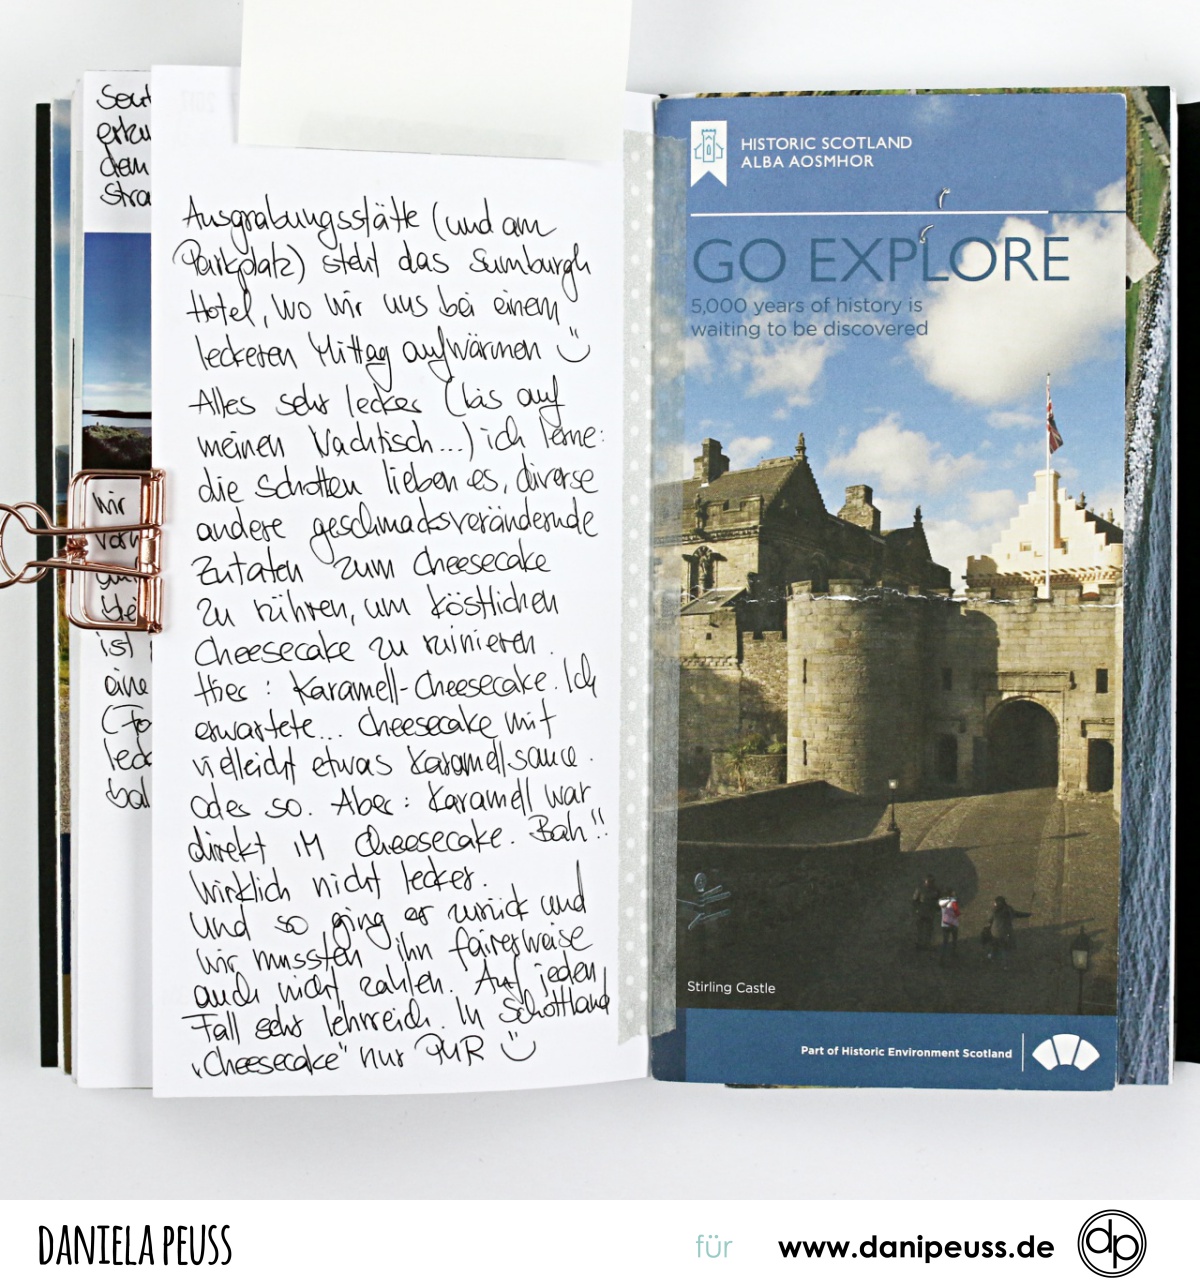 Ausgrabungsstätte (und am
Parkplatz) steht das Sumburgh
Hotel, wo wir uns bei einem
leckeren Mittag aufwärmen
Alles sehr lecker (bis auf
meinen Nachtisch...) ich lerne:
die Schotten lieben es, diverse
andere geschmacksverändernde
Zutaten zum Cheesecake
zu rühren, um köstlichen
Cheesecake zu ruinieren.
Hier: Karamell-Cheesecake. Ich
erwartete... Cheesecake mit
vielleicht etwas Karamellsauce.
Oder so. Aber: Karamell war
direkt IM Cheesecake. Bah!!
Wirklich nicht lecker.
Und so ging er zurück und
wir mussten ihn fairerweise
auch nicht zahlen. Auf jeden
Fall sehr lehrreich. In Schottland
„Cheesecake" nur PUR
dem
wir
ist
eine
HISTORIC SCOTLAND
ALBA AOSMHOR
GO EXPLORE
5,000 years of history is
waiting to be discovered
Stirling Castle
Part of Historic Environment Scotland
DANIELA PEUSS
für www.danipeuss.de dp